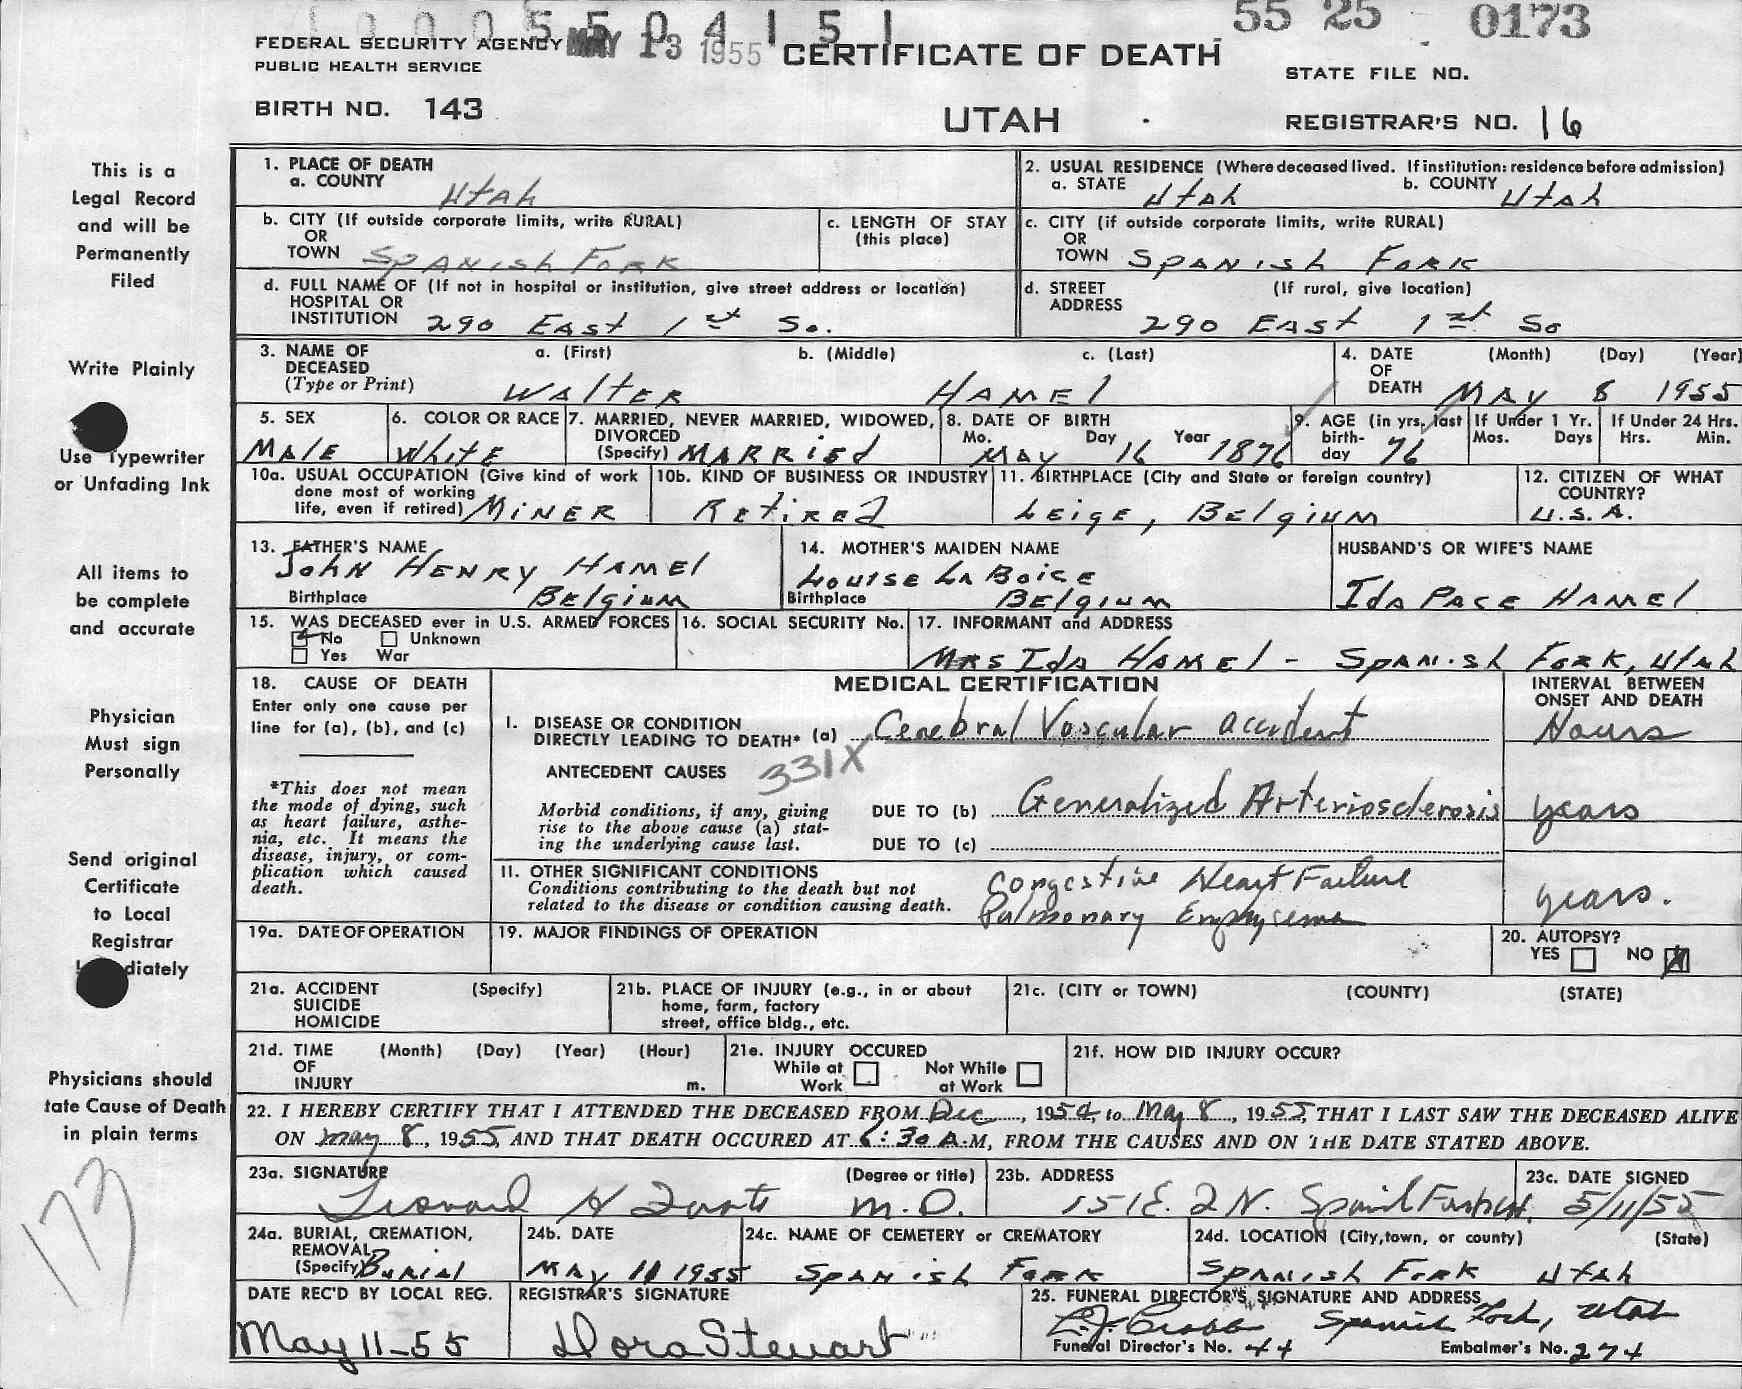 0005504151
55 25 0173
FEDERAL SECURITY AGENCY MAY 13 1955 CERTIFICATE OF DEATH
PUBLIC HEALTH SERVICE
STATE FILE NO.
BIRTH NO. 143 UTAH REGISTRAR'S NO. 16
This is a
Legal Record
and will be
Permanently
Filed
Write Plainly
Use Typewriter
or Unfading Ink
All items to
be complete
and accurate
Physician
Must sign
Personally
Send original
Certificate
to Local
Registrar
diately
Physicians should
tate Cause of Death
in plain terms
173
1. PLACE OF DEATH
a. COUNTY Utah
2. USUAL RESIDENCE (Where deceased lived. If institution: residence before admission)
a. STATE Utah b. COUNTY Utah
b. CITY (If outside corporate limits, write RURAL)
OR
TOWN Spanish Fork
c. LENGTH OF STAY
(this place)
c. CITY (if outside corporate limits, write RURAL)
OR
TOWN Spanish Fork
d. FULL NAME OF (If not in hospital or institution, give street address or location)
HOSPITAL OR
INSTITUTION 290 East 1st So.
d. STREET (If rural, give location)
ADDRESS
290 East 1st So
3. NAME OF a. (First) b. (Middle) c. (Last)
DECEASED
(Type or Print) Walter Hamel
4. DATE (Month) (Day) (Year)
OF
DEATH May 8 1955
5. SEX
Male
6. COLOR OR RACE
White
7. MARRIED, NEVER MARRIED, WIDOWED,
DIVORCED
(Specify) Married
8. DATE OF BIRTH
Mo. Day Year
May 16 1876
9. AGE (in yrs, last
birth-
day 76
If Under 1 Yr.
Mos. Days
If Under 24 Hrs.
Hrs. Min.
10a. USUAL OCCUPATION (Give kind of work
done most of working
life, even if retired) Miner
10b. KIND OF BUSINESS OR INDUSTRY
Retired
11. BIRTHPLACE (City and State or foreign country)
Leige, Belgium
12. CITIZEN OF WHAT
COUNTRY?
U.S.A.
13. FATHER'S NAME
John Henry Hamel
Birthplace Belgium
14. MOTHER'S MAIDEN NAME
Louise La Boice
Birthplace Belgium
HUSBAND'S OR WIFE'S NAME
Ida Pace Hamel
15. WAS DECEASED ever in U.S. ARMED FORCES
No Unknown
Yes War
16. SOCIAL SECURITY No.
17. INFORMANT and ADDRESS
Mrs Ida Hamel - Spanish Fork, Utah
18. CAUSE OF DEATH
Enter only one cause per
line for (a), (b), and (c)
*This does not mean
the mode of dying, such
as heart failure, asthe-
nia, etc. It means the
disease, injury, or com-
plication which caused
death.
MEDICAL CERTIFICATION
INTERVAL BETWEEN
ONSET AND DEATH
I. DISEASE OR CONDITION
DIRECTLY LEADING TO DEATH* (a) Cerebral Vascular accident Hours
ANTECEDENT CAUSES 331X
Morbid conditions, if any, giving
rise to the above cause (a) stat-
ing the underlying cause last.
DUE TO (b) Generalized Arteriosclerosis years
DUE TO (c)
11. OTHER SIGNIFICANT CONDITIONS
Conditions contributing to the death but not
related to the disease or condition causing death.
Congestive Heart Failure
Pulmonary Emphysema years.
19a. DATE OF OPERATION
19. MAJOR FINDINGS OF OPERATION
20. AUTOPSY?
YES NO X
21a. ACCIDENT (Specify)
SUICIDE
HOMICIDE
21b. PLACE OF INJURY (e.g., in or about
home, farm, factory
street, office bldg., etc.
21c. (CITY or TOWN) (COUNTY) (STATE)
21d. TIME (Month) (Day) (Year) (Hour)
OF
INJURY m.
21e. INJURY OCCURED
While at Not While
Work at Work
21f. HOW DID INJURY OCCUR?
22. I HEREBY CERTIFY THAT I ATTENDED THE DECEASED FROM Dec, 1954, to May 8, 1955, THAT I LAST SAW THE DECEASED ALIVE
ON May 8, 1955, AND THAT DEATH OCCURED AT 6:30 A.M, FROM THE CAUSES AND ON THE DATE STATED ABOVE.
23a. SIGNATURE (Degree or title)
Leonard H M.D.
23b. ADDRESS
151 E. 2 N.
23c. DATE SIGNED
5/11/55
24a. BURIAL, CREMATION,
REMOVAL
(Specify) Burial
24b. DATE
May 11 1955
24c. NAME OF CEMETERY OR CREMATORY
Spanish Fork
24d. LOCATION (City, town, or county) (State)
Spanish Fork Utah
DATE REC'D BY LOCAL REG.
May 11-55
REGISTRAR'S SIGNATURE
Dora Stewart
25. FUNERAL DIRECTOR'S, SIGNATURE AND ADDRESS
Spanish Fork, Utah
Funeral Director's No. 44 Embalmer's No. 274